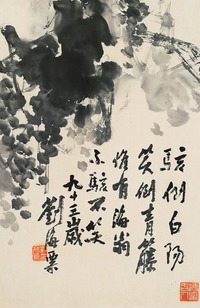 駭倒白陽
笑倒青藤
惟有海翁
不駭不笑
九十三歲
劉海粟